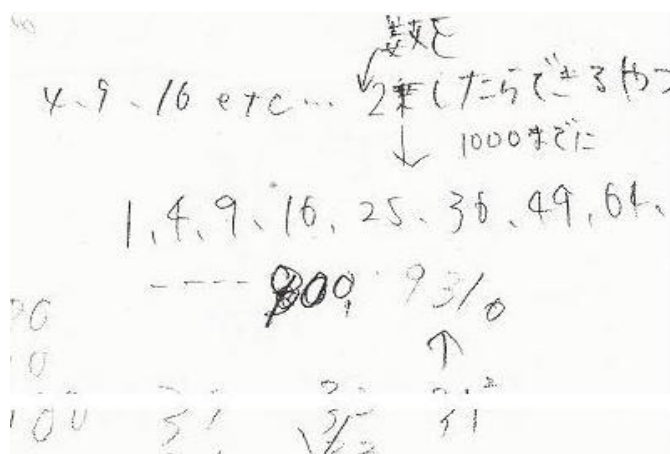 数を
4、9、16 etc... 2乗したらできるやつ
1000までに
1、4、9、16、25、36、49、64、
---- 900, 931。
↑
00
0
100 31 32 31²